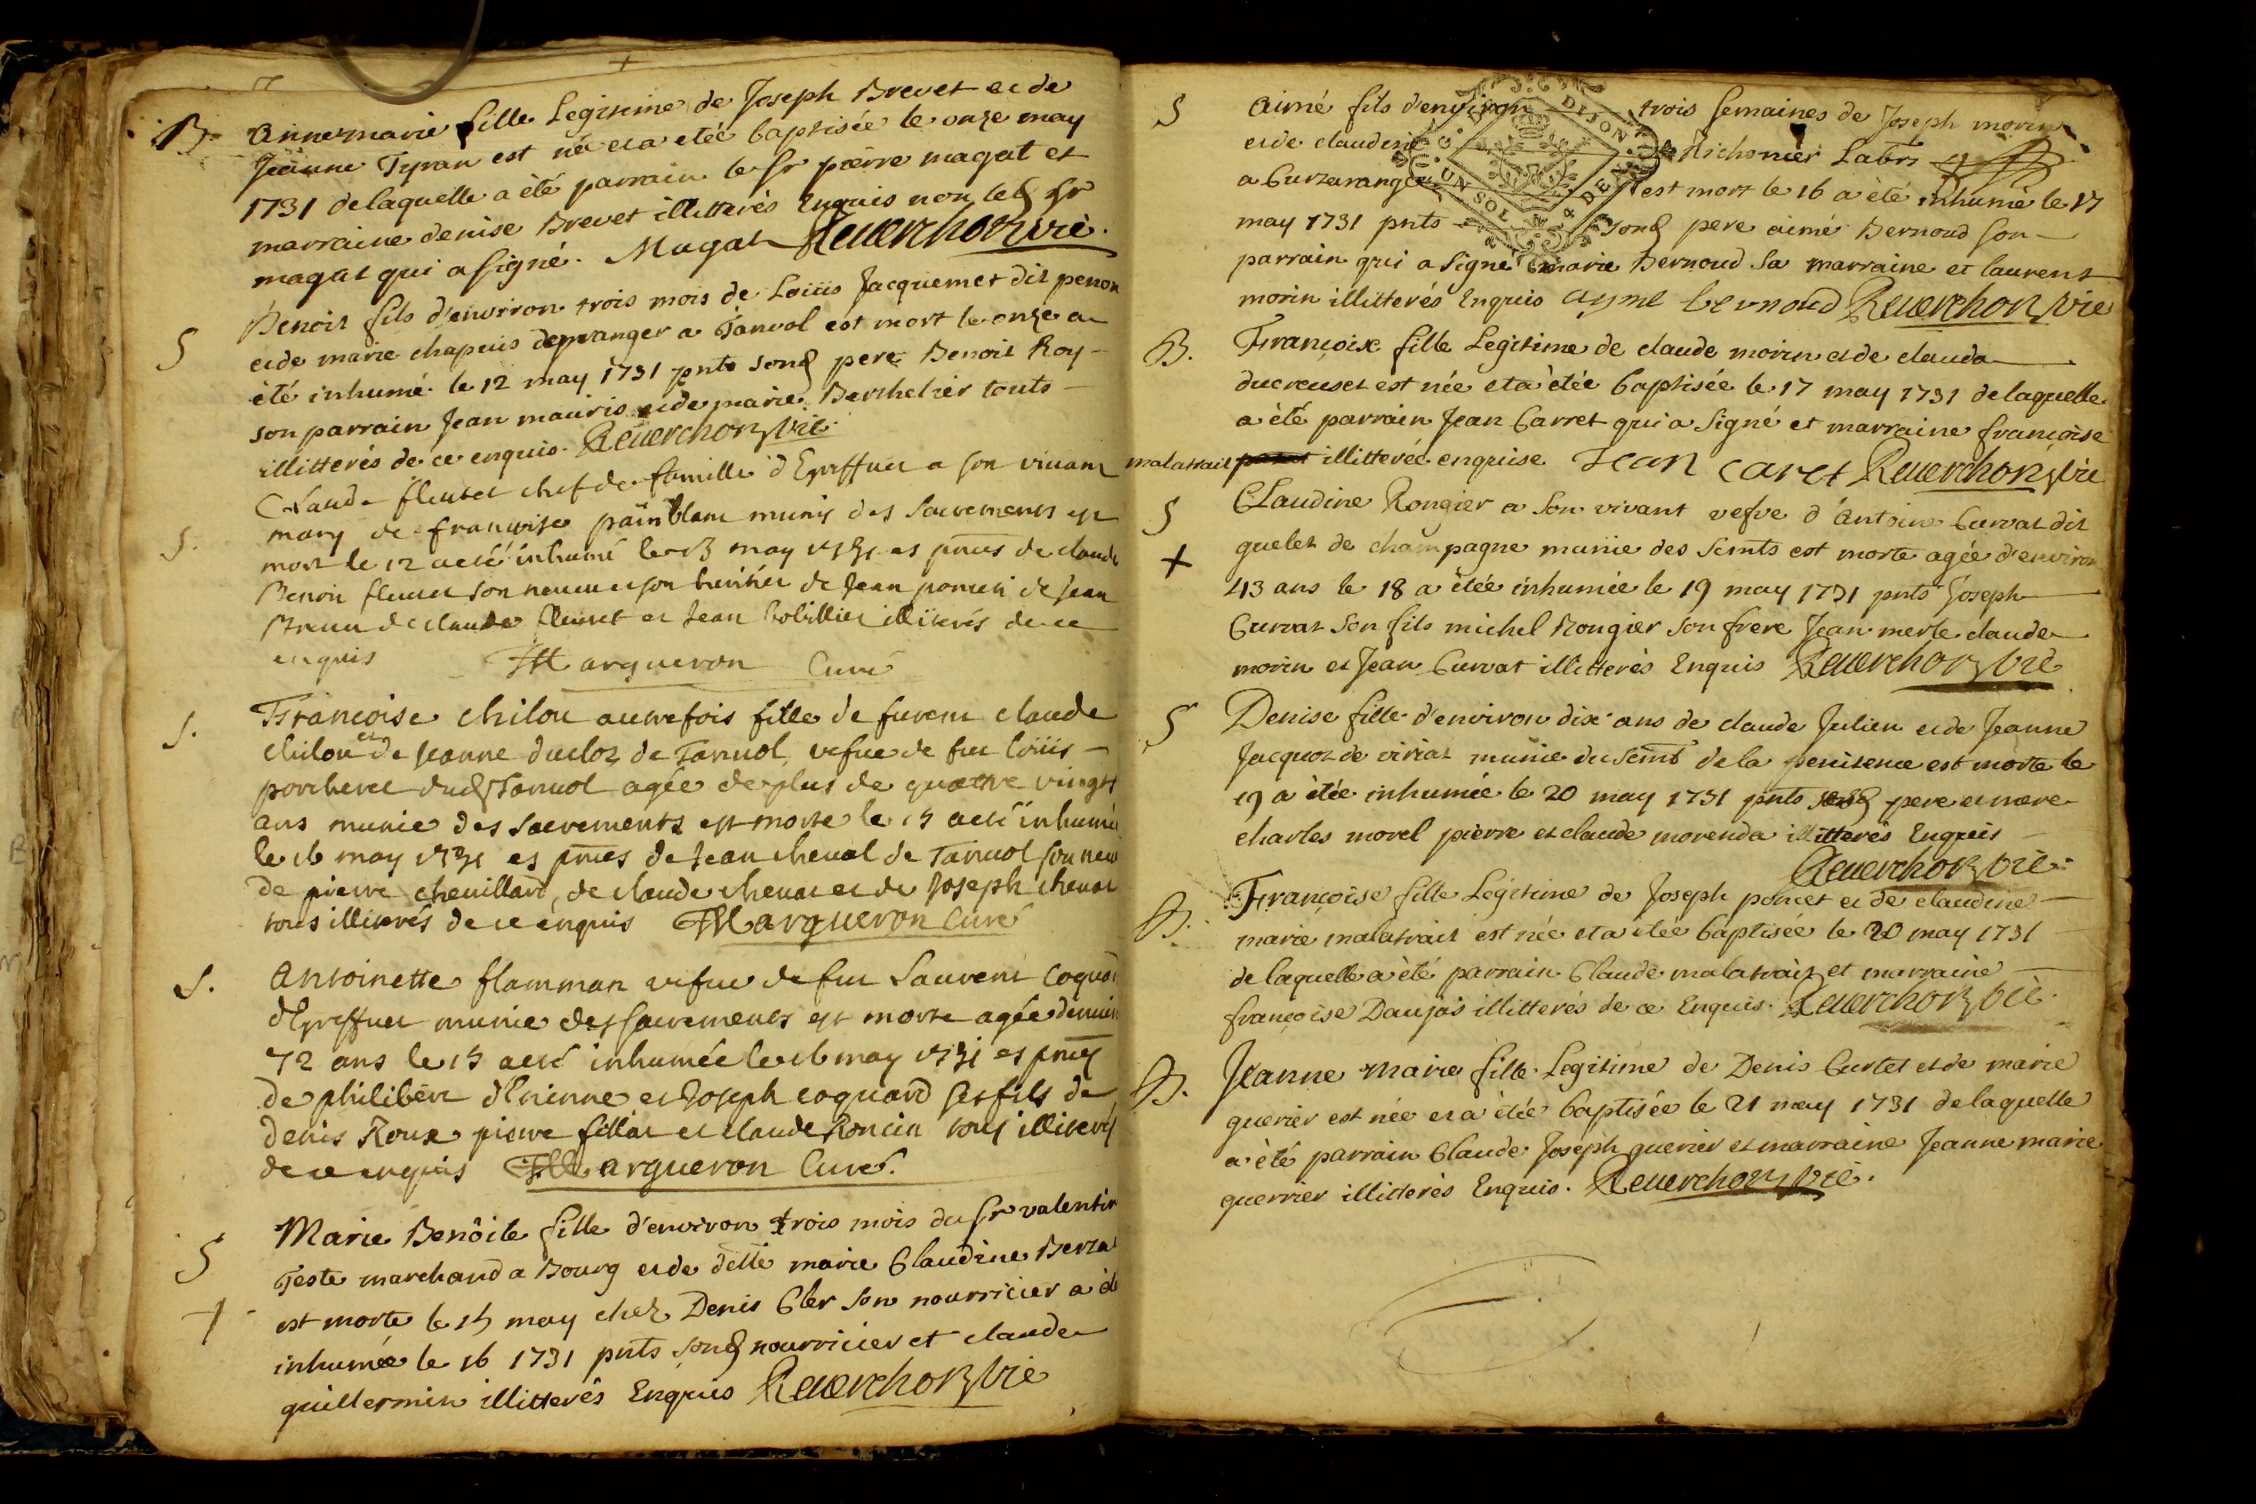 B. Anne marie fille Legitime de Joseph Brevet et de
Jeanne Tyran est née et a etée baptisée le onze may
1731 de laquelle a èté parrain le sr pierre magat et
marraine denise Brevet illitterés Enquis non led sr
magat qui a signé. Magat Reverchon vic.
S Benoit fils d'environ trois mois de Loüis Jacquemet dit penon
et de marie chapuis a Tanvol est mort le onze a
été inhumé le 12 may 1731 pnts sond pere Benoit Roy
son parrain Jean mauris et de marie Berthelier touts
illitterés de ce enquis. Reverchon vic.
S. Claude fleuret chef de famille d'Epeffieu a son vivant
mary de françoise painblanc munis des sacrements est
mort le 12 a esté inhumé le 13 may 1731 es pnces de claude
Benoit fleuret son neveu et son heritier de Jean poncet de Jean
de claude fleuret et Jean Robillier illiterés de ce
enquis Margueron Curé
S. Françoise chilou autrefois fille de furent claude
chilou et de Jeanne duclos de Tanvol vefue de feu loüis
porcheret dud Tanvol agée de plus de quattre vingts
ans munie des sacrements est morte le 15 a esté inhumé
le 16 may 1731 es pnces de Jean cheval de Tanvol son neveu
de pierre chevillard, de claude cheval et de Joseph cheval
tous illiterés de ce enquis Margueron Curé
S. Antoinette flamman vefue de feu Laurent coquard
d'Epeffieu munie des sacrements est morte agée denviron
72 ans le 15 a esté inhumée le 16 may 1731 es pnces
de philibert d'Etienne et Joseph coquard ses fils de
denis Roux pierre fillat et claude Roncin tous illiterés
de ce enquis Margueron Curé.
S Marie Benôite fille d'environ trois mois du sr valentin
Teste marchand a Bourg et de dlle marie Claudine
est morte le 15 may chez Denis Cler son nourricier a été
inhumée le 16 1731 pnts sond nourricier et claude
guillermin illitterés Enquis Reverchon vic
S Aimé fils d'environ trois semaines de Joseph morin
et de claudine Richonier Labrs
a Curzaranges est mort le 16 a èté inhumé le 17
may 1731 pnts sond pere aimé Bernoud son
parrain qui a signé marie Bernoud sa marraine et laurent
morin illitterés Enquis ayme bernoud Reverchon vic
B. Françoise fille Legitime de claude morin et de clauda
ducreuset est née et a ètée baptisée le 17 may 1731 de laquelle
a èté parrain Jean Carret qui a signé et marraine françoise
malatrait illitterée enquise Jean caret Reverchon vic
S Claudine Rongier a son vivant vefve d'Antoine Curvat dit
guelet de champagne munie des Scmts est morte agée d'environ
43 ans le 18 a ètée inhumée le 19 may 1731 pnts Joseph
Curvat son fils michel Rongier son frere Jean merle claude
morin et Jean Curvat illitterés Enquis Reverchon vic
S Denise fille d'environ dix ans de claude Julien et de Jeanne
Jacquot de viriat munie du Scmt de la penitence est morte le
19 a ètée inhumée le 20 may 1731 pnts sesd pere et mere
charles morel pierre et claude morenda illitterés Enquis
Reverchon vic.
B. Françoise fille Legitime de Joseph poncet et de claudine
marie malatrait est née et a ètée baptisée le 20 may 1731
de laquelle a èté parrain Claude malatrait et marraine
françoise Daujas illitterés de ce Enquis. Reverchon vic.
B. Jeanne Marie fille Legitime de Denis Curtet et de marie
guerier est née et a ètée baptisée le 21 may 1731 de laquelle
a èté parrain Claude Joseph guerier et marraine Jeanne marie
guerrier illitterés Enquis. Reverchon vic.
DIJON
UN SOL
4 DEN